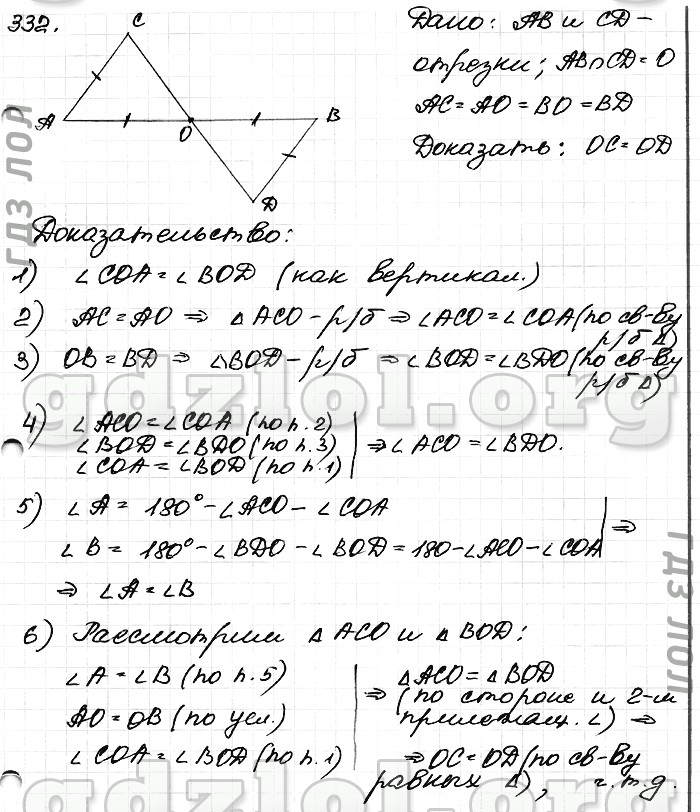 332.
C
A
O
B
D
Дано: AB и CD –
отрезки; AB∩CD=O
AC=AO=BO=BD
Доказать: OC=OD
Доказательство:
1) ∠COA=∠BOD (как вертикал.)
2) AC=AO ⇒ △ACO–р/б ⇒ ∠ACO=∠COA (по св-ву
р/б △)
3) OB=BD ⇒ △BOD–р/б ⇒ ∠BOD=∠BDO (по св-ву
р/б △)
4) ∠ACO=∠COA (по п.2)
∠BOD=∠BDO (по п.3) ⇒ ∠ACO=∠BDO.
∠COA=∠BOD (по п.1)
5) ∠A= 180°–∠ACO–∠COA
∠B= 180°–∠BDO–∠BOD=180–∠ACO–∠COA ⇒
⇒ ∠A=∠B
6) Рассмотрим △ACO и △BOD:
∠A=∠B (по п.5)
AO=OB (по усл.)
∠COA=∠BOD (по п.1)
△ACO=△BOD
⇒ (по стороне и 2-м
прилежащ. ∠) ⇒
⇒ OC=OD (по св-ву
равных △), ч.т.д.
gdzlol.org
гдз лол
гдз лол